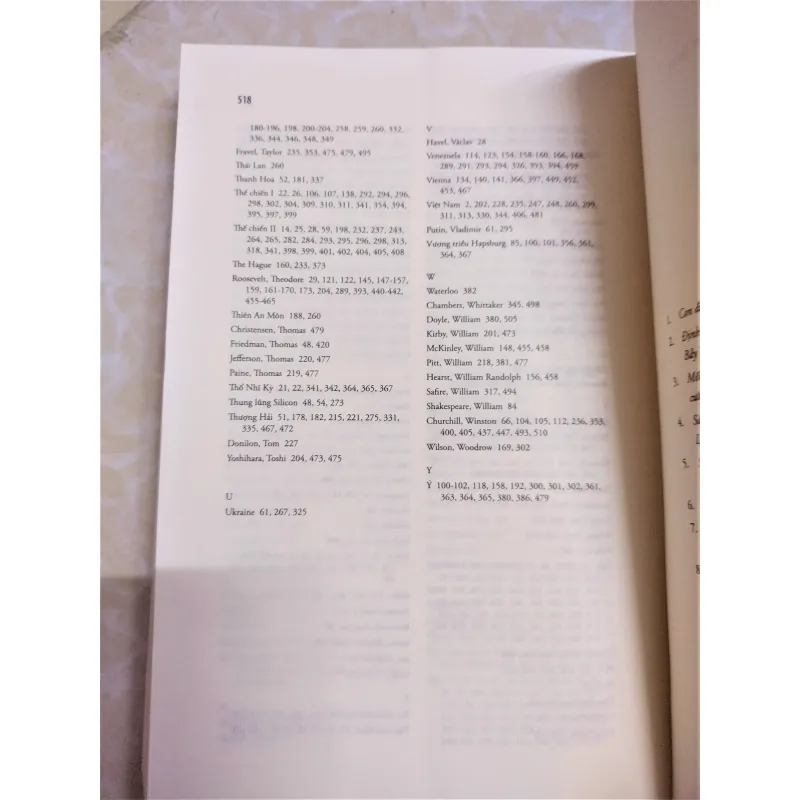 518
180-196, 198, 200-204, 258, 259, 260, 332,
336, 344, 346, 348, 349
Fravel, Taylor 235, 353, 475, 479, 495
Thái Lan 260
Thanh Hoa 52, 181, 337
Thế chiến I 22, 26, 106, 107, 138, 292, 294, 296,
298, 302, 304, 309, 310, 311, 341, 354, 394,
395, 397, 399
Thế chiến II 14, 25, 28, 59, 198, 232, 237, 243,
264, 265, 282, 284, 293, 295, 296, 298, 313,
318, 341, 398, 399, 401, 402, 404, 405, 408
The Hague 160, 233, 373
Roosevelt, Theodore 29, 121, 122, 145, 147-157,
159, 161-170, 173, 204, 289, 393, 440-442,
455-465
Thiên An Môn 188, 260
Christensen, Thomas 479
Friedman, Thomas 48, 420
Jefferson, Thomas 220, 477
Paine, Thomas 219, 477
Thổ Nhĩ Kỳ 21, 22, 341, 342, 364, 365, 367
Thung lũng Silicon 48, 54, 273
Thượng Hải 51, 178, 182, 215, 221, 275, 331,
335, 467, 472
Donilon, Tom 227
Yoshihara, Toshi 204, 473, 475
U
Ukraine 61, 267, 325
V
Havel, Václav 28
Venezuela 114, 123, 154, 158-160, 166, 168,
289, 291, 293, 294, 326, 393, 394, 459
Vienna 134, 140, 141, 366, 397, 449, 452,
453, 467
Việt Nam 2, 202, 228, 235, 247, 248, 260, 299,
311, 313, 330, 344, 406, 481
Putin, Vladimir 61, 295
Vương triều Hapsburg 85, 100, 101, 356, 363,
364, 367
W
Waterloo 382
Chambers, Whittaker 345, 498
Doyle, William 380, 505
Kirby, William 201, 473
McKinley, William 148, 455, 458
Pitt, William 218, 381, 477
Hearst, William Randolph 156, 458
Safire, William 317, 494
Shakespeare, William 84
Churchill, Winston 66, 104, 105, 112, 236, 353,
400, 405, 437, 447, 493, 510
Wilson, Woodrow 169, 302
Y
Ý 100-102, 118, 158, 192, 300, 301, 302, 361,
363, 364, 365, 380, 386, 479
1.
2.
Bẫy
3.
4.
5.
6.
7.
8